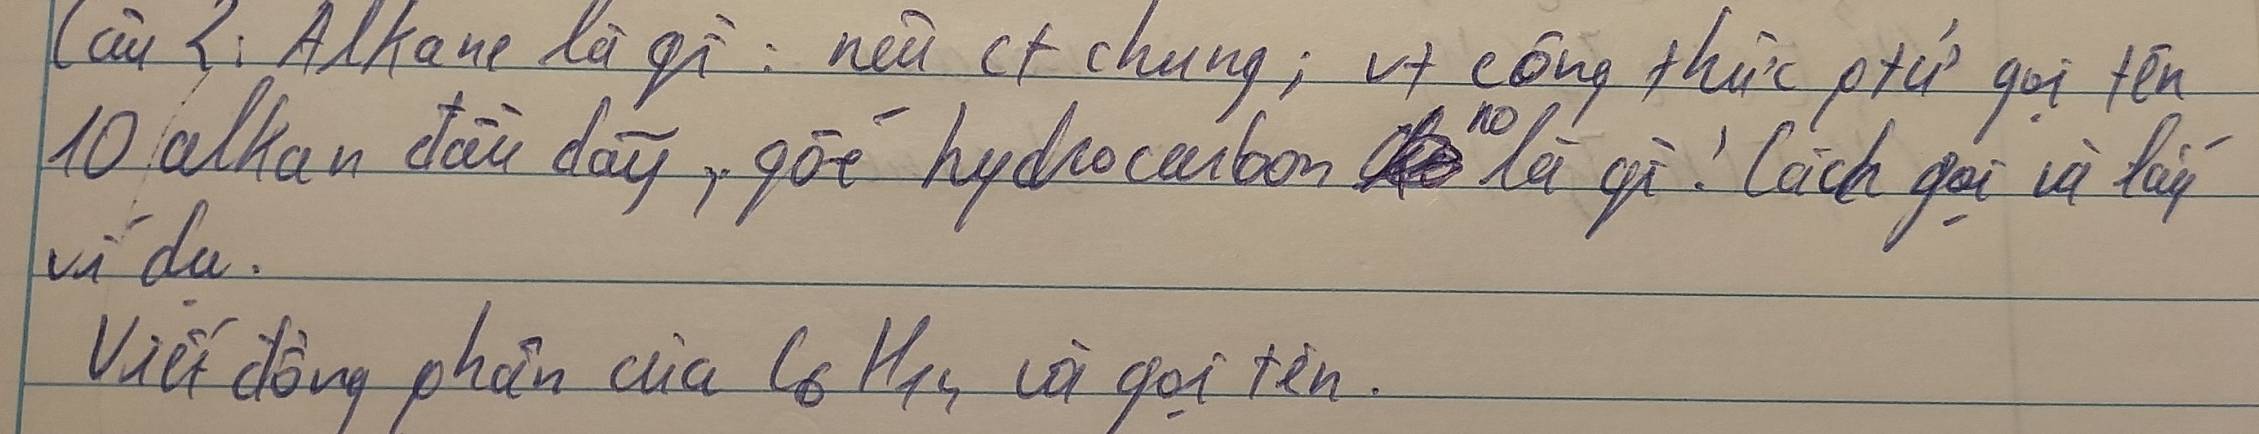 Câu 2: Alkane là gì: nêu ct chung; vt công thức ptử gọi tên
10 alkan đầu dãy, gốc hydrocacbon no là gì? Cách gọi và lấy
ví dụ.
Viết đồng phân của C₆H₁₄ và gọi tên.